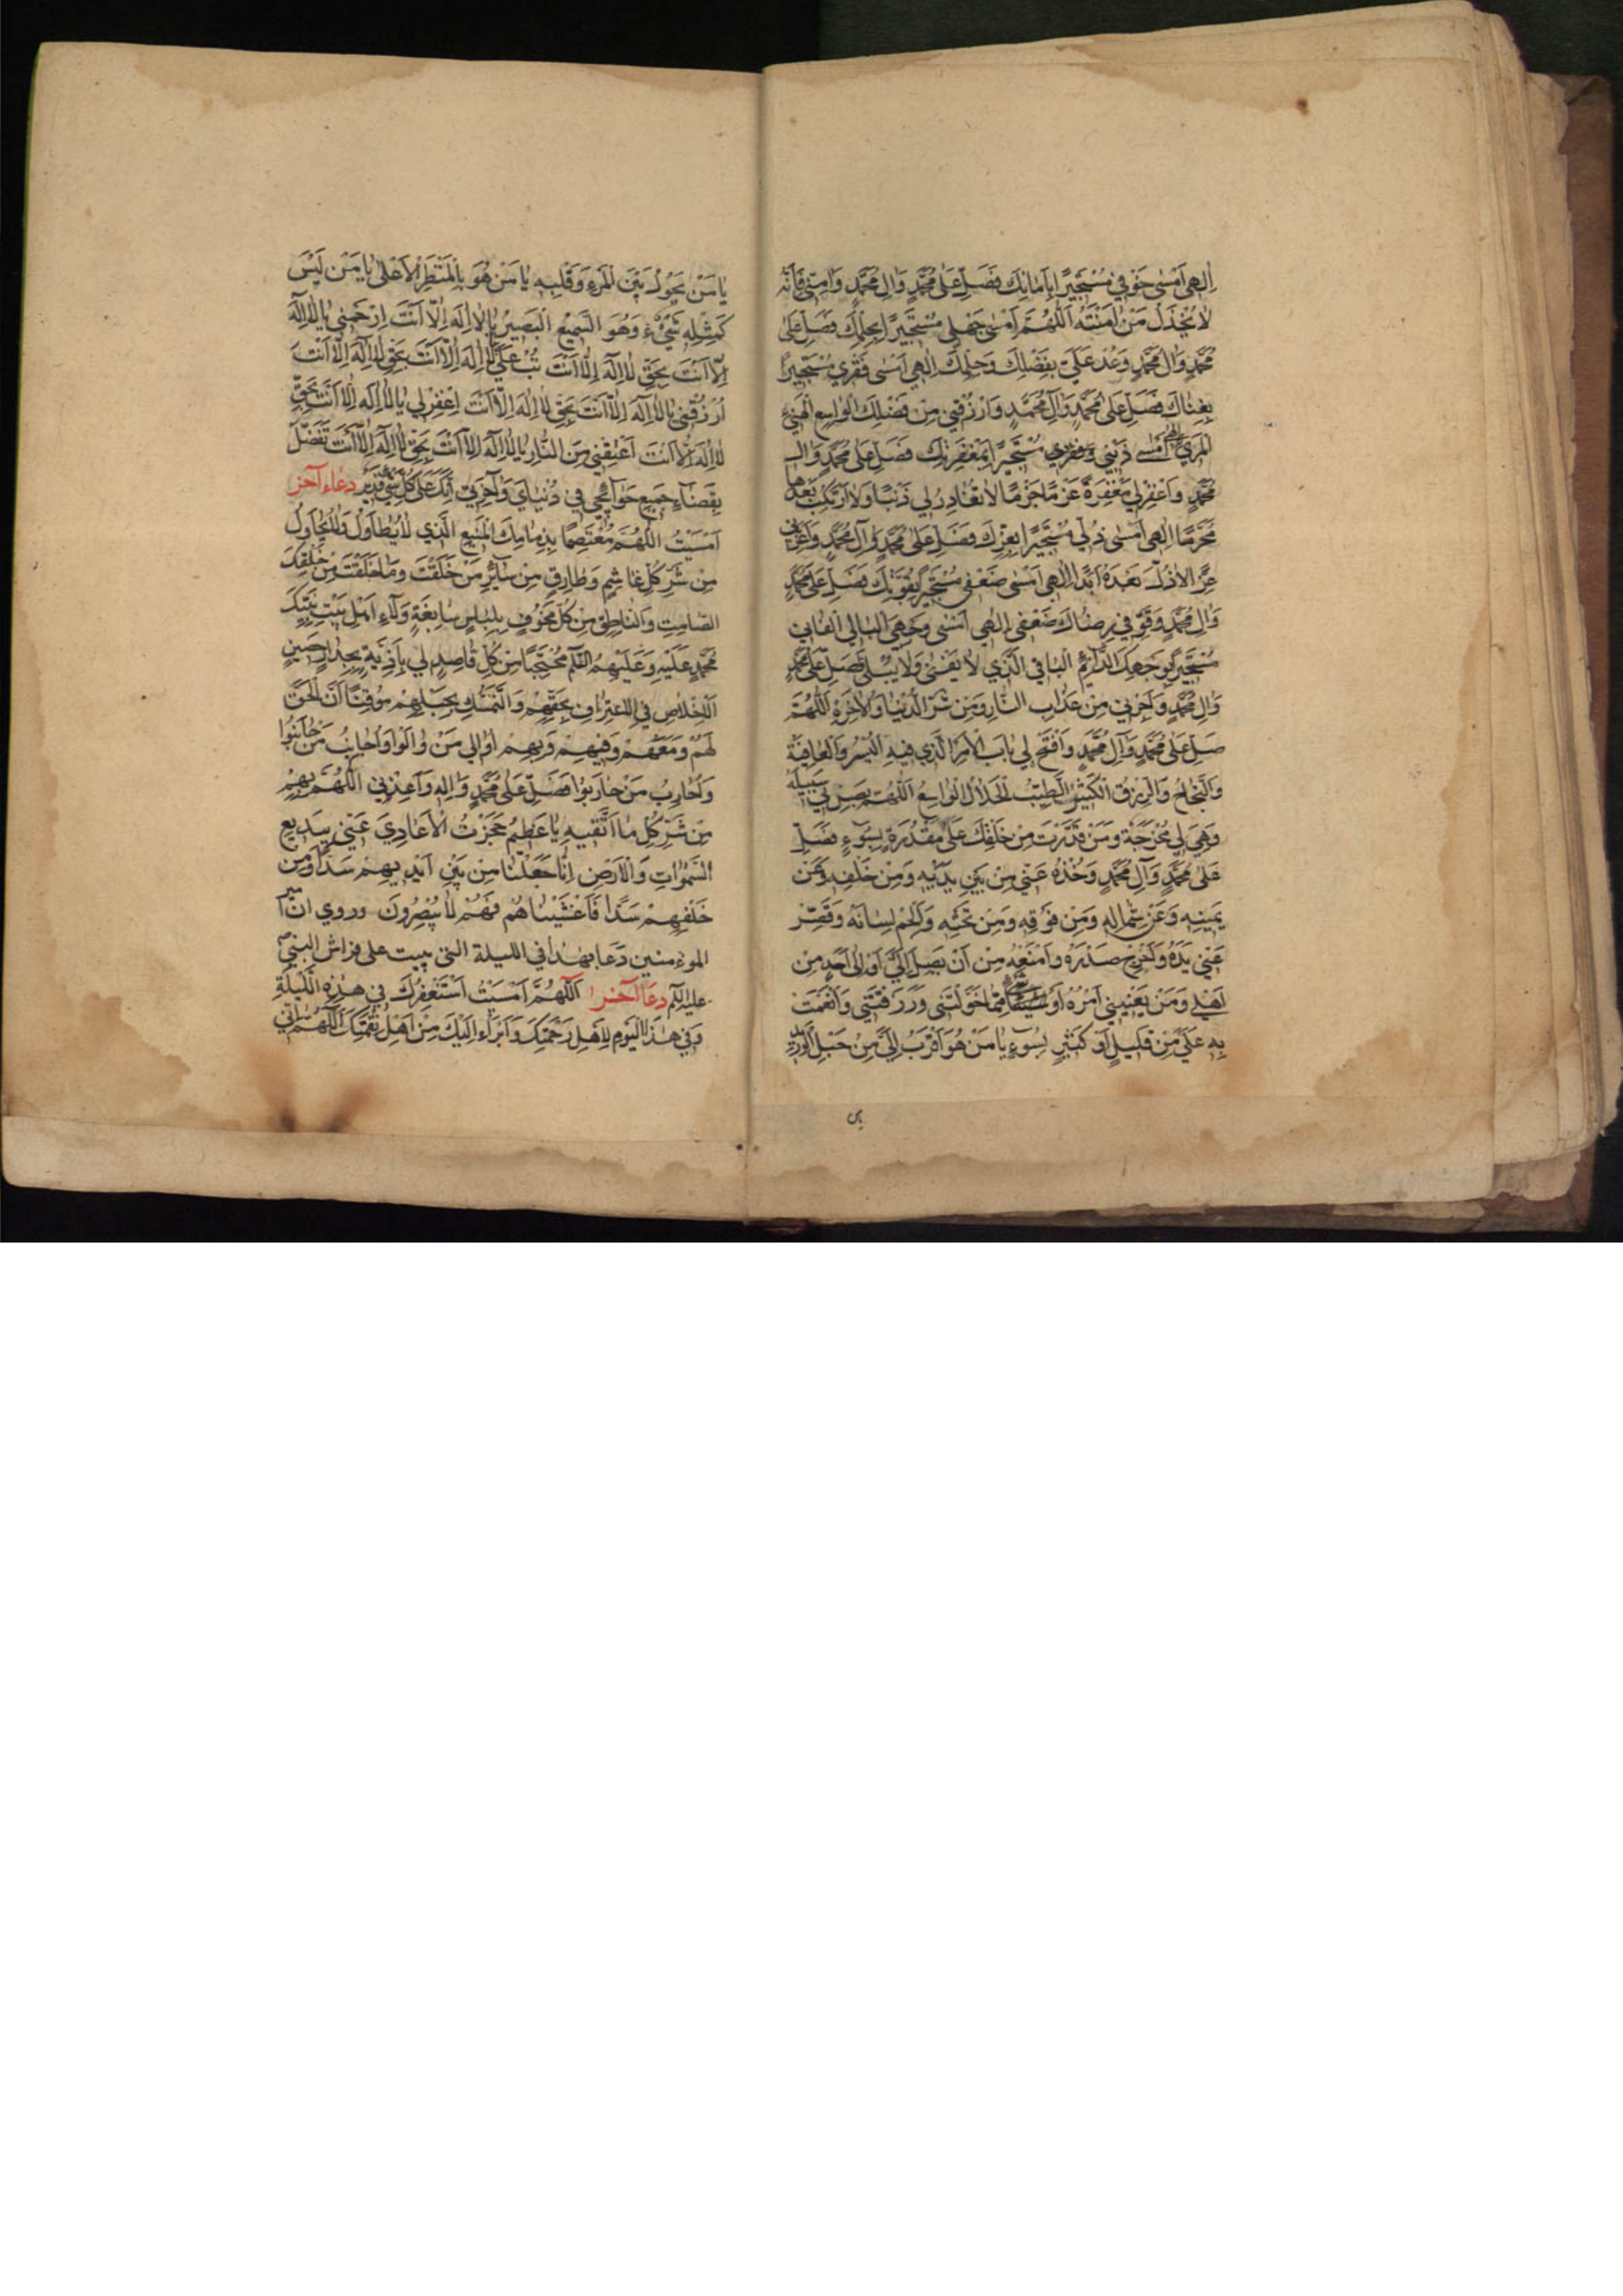 اِلهي اَمْسى خَوْفي مُسْتَجيرًا بِاَمانِكَ فَصَلِّ عَلى مُحَمَّدٍ وَالِ مُحَمَّدٍ وَامِنّي فَاِنَّهُ
لا يُخْذَلُ مَنْ امَنْتَهُ اَللّهُمَّ اَمْسى جَهْلي مُسْتَجيرًا بِحِلْمِكَ فَصَلِّ عَلى
مُحَمَّدٍ وَالِ مُحَمَّدٍ وَعُدْ عَلَيَّ بِفَضْلِكَ وَحِلْمِكَ اِلهي اَمْسى فَقْري مُسْتَجيرًا
بِغِناكَ فَصَلِّ عَلى مُحَمَّدٍ وَآلِ مُحَمَّدٍ وَارْزُقْني مِنْ فَضْلِكَ الْواسِعِ الْهَنيءِ
الْمَريءِ الهي اَمْسى ذَنْبي مُسْتَجيرًا بِمَغْفِرَتِكَ فَصَلِّ عَلى مُحَمَّدٍ وَالِ
مُحَمَّدٍ وَاغْفِرْلي مَغْفِرَةً عَزْمًا جَزْمًا لا تُغادِرُ لي ذَنْبًا وَلا اَرْتَكِبُ بَعْدَها
مُحَرَّمًا اِلهي اَمْسى ذُلّي مُسْتَجيرًا بِعِزِّكَ فَصَلِّ عَلى مُحَمَّدٍ وَآلِ مُحَمَّدٍ وَاَعِزَّني
عِزًّا لاذُلَّ بَعْدَهُ اَبَدًا اِلهي اَمْسى ضَعْفي مُسْتَجيرًا بِقُوَّتِكَ فَصَلِّ عَلى مُحَمَّدٍ
وَالِ مُحَمَّدٍ وَقَوِّ في رِضاكَ ضَعْفي اِلهي اَمْسى وَجْهِيَ الْبالي الْفاني
مُسْتَجيرًا بِوَجْهِكَ الدّآئِمِ الْباقي الَّذي لا يَفْنى وَلا يَبْلى فَصَلِّ عَلى مُحَمَّدٍ
وَالِ مُحَمَّدٍ وَاَجِرْني مِنْ عَذابِ النّارِ وَمِنْ شَرِّ الدُّنْيا وَالاخِرَةِ اَللّهُمَّ
صَلِّ عَلى مُحَمَّدٍ وَآلِ مُحَمَّدٍ وَافْتَحْ لي بابَ الْاَمْرِ الَّذي فيهِ الْيُسْرُ وَالْعافِيَةُ
وَالنَّجاحُ وَالرِّزْقُ الْكَثيرُ الطَّيِّبُ الْحَلالُ الْواسِعُ اَللّهُمَّ بَصِّرْني سَبيلَهُ
وَهَيِّ لي مَخْرَجَهُ وَمَنْ قَدَّرْتَ مِنْ خَلْقِكَ عَلَيَّ مَقْدُرَةً بِسُوءٍ فَصَلِّ
عَلى مُحَمَّدٍ وَآلِ مُحَمَّدٍ وَخُذْهُ عَنّي مِنْ بَيْنِ يَدَيْهِ وَمِنْ خَلْفِهِ وَعَنْ
يَمينِهِ وَعَنْ شِمالِهِ وَمِنْ فَوْقِهِ وَمِنْ تَحْتِهِ وَاَلْجِمْ لِسانَهُ وَقَصِّرْ
عَنّي يَدَهُ وَاَحْرِجْ صَدْرَهُ وَامْنَعْهُ مِنْ اَنْ يَصِلَ اِلَيَّ اَوْ اِلى اَحَدٍ مِنْ
اَهْلي وَمَنْ يَعْنيني اَمْرُهُ اَوْ شَيْءٍ مِمّا خَوَّلْتَني وَرَزَقْتَني وَاَنْعَمْتَ
بِهِ عَلَيَّ مِنْ قَليلٍ اَوْ كَثيرٍ بِسُوءٍ يا مَنْ هُوَ اَقْرَبُ اِلَيَّ مِنْ حَبْلِ الْوَريدِ
يا مَنْ يَحُولُ بَيْنَ الْمَرْءِ وَقَلْبِهِ يا مَنْ هُوَ بِالْمَنْظَرِ الْاَعْلى يا مَنْ لَيْسَ
كَمِثْلِهِ شَيْءٌ وَهُوَ السَّميعُ الْبَصيرُ يا لا اِلهَ اِلّا اَنْتَ اِرْحَمْني يا لا اِلهَ
اِلّا اَنْتَ بِحَقِّ لا اِلهَ اِلّا اَنْتَ تُبْ عَلَيَّ يا لا اِلهَ اِلّا اَنْتَ بِحَقِّ لا اِلهَ اِلّا اَنْتَ
اُرْزُقْني يا لا اِلهَ اِلّا اَنْتَ بِحَقِّ لا اِلهَ اِلّا اَنْتَ اِغْفِرْ لي يا لا اِلهَ اِلّا اَنْتَ بِحَقِّ
لا اِلهَ اِلّا اَنْتَ اَعْتِقْني مِنَ النّارِ يا لا اِلهَ اِلّا اَنْتَ بِحَقِّ لا اِلهَ اِلّا اَنْتَ تَفَضَّلْ
بِقَضآءِ جَميعِ حَوآئِجي في دُنْيايَ وَآخِرَتي اِنَّكَ عَلى كُلِّ شَيْءٍ قَديرٌ دعاء آخر
اَمْسَيْتُ اَللّهُمَّ مُعْتَصِمًا بِذِمامِكَ الْمَنيعِ الَّذي لا يُطاوَلُ وَلا يُحاوَلُ
مِنْ شَرِّ كُلِّ غاشِمٍ وَطارِقٍ مِنْ سآئِرِ مَنْ خَلَقْتَ وَما خَلَقْتَ مِنْ خَلْقِكَ
الصّامِتِ وَالنّاطِقِ مِنْ كُلِّ مَخُوفٍ بِلِباسٍ سابِغَةٍ وَلآءِ اَهْلِ بَيْتِ نَبِيِّكَ
مُحَمَّدٍ عَلَيْهِ وَعَلَيْهِمُ السَّلَم مُحْتَجِبًا مِنْ كُلِّ قاصِدٍ لي بِاَذِيَّةٍ بِجِدارٍ حَصينٍ
اَلْاِخْلاصِ فِي الْاِعْتِرافِ بِحَقِّهِمْ وَالتَّمَسُّكِ بِحَبْلِهِمْ مُوقِنًا اَنَّ الْحَقَّ
لَهُمْ وَمَعَهُمْ وَفيهِمْ وَبِهِمْ اُوالي مَنْ والَوْا وَاُجانِبُ مَنْ جانَبُوا
وَاُحارِبُ مَنْ حارَبُوا فَصَلِّ عَلى مُحَمَّدٍ وَالِهِ وَاَعِذْني اَللّهُمَّ بِهِمْ
مِنْ شَرِّ كُلِّ ما اَتَّقيهِ يا عَظيمُ حَجَزْتُ الْاَعادِيَ عَنّي بِبَديعِ
السَّمواتِ وَالْاَرْضِ اِنّا جَعَلْنا مِنْ بَيْنِ اَيْديهِمْ سَدًّا وَمِنْ
خَلْفِهِمْ سَدًّا فَاَغْشَيْناهُمْ فَهُمْ لا يُبْصِرُونَ وروي انّ امير
الموءمنين دَعا بهذا في الليلة التي يبيت على فراش النبيّ
عليه السلم دعاء آخر اَللّهُمَّ اَمْسَيْتُ اَسْتَغْفِرُكَ في هذِهِ اللَّيْلَةِ
وَفي هذَا الْيَوْمِ لِاَهْلِ رَحْمَتِكَ وَاَبْرَاُ اِلَيْكَ مِنْ اَهْلِ نَقِمَتِكَ اَللّهُمَّ اِنّي